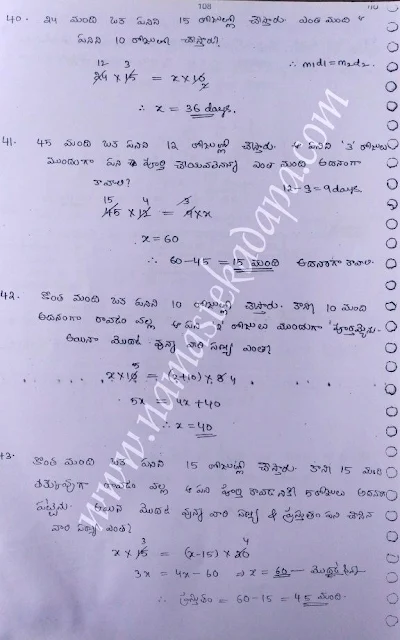 108
40. 24 మంది ఒక పనిని 15 రోజుల్లో చేస్తారు. ఎంత మంది ఆ
పనిని 10 రోజుల్లో చేస్తారు?
∴ m1d1 = m2d2.
12 3
24 × 15 = x × 10
2
∴ x = 36 days.
41. 45 మంది ఒక పనిని 12 రోజుల్లో చేస్తారు. ఆ పనిని '3' రోజులు
ముందుగా పని పూర్తి చేయవలెనన్న ఎంత మంది అదనంగా
కావాలి?
12-3 = 9 days.
15 4 3
45 × 12 = 9 × x
x = 60
∴ 60-45 = 15 మంది అదనంగా కావాలి.
42. కొంత మంది ఒక పనిని 10 రోజుల్లో చేస్తారు. కాని 10 మంది
అదనంగా రావడం వల్ల ఆ పని 2 రోజులు ముందుగా పూర్తయ్యెను.
అయినా మొదట వున్న వారి సంఖ్య ఎంత?
5
x × 10 = (x+10) × 8 4
5x = 4x + 40
∴ x = 40
43. కొంత మంది ఒక పనిని 15 రోజుల్లో చేస్తారు. కాని 15 మంది
తక్కువగా రావడం వల్ల ఆ పని పూర్తి కావడానికి 5 రోజులు అదనంగా
పట్టెను. అయిన మొదట వున్న వారి సంఖ్య & ప్రస్తుతం పని చేసిన
వారి సంఖ్య ఎంత?
3 4
x × 15 = (x-15) × 20
3x = 4x - 60 ⇒ x = 60
∴ ప్రస్తుతం = 60-15 = 45 మంది.
www.namasteKadapa.com